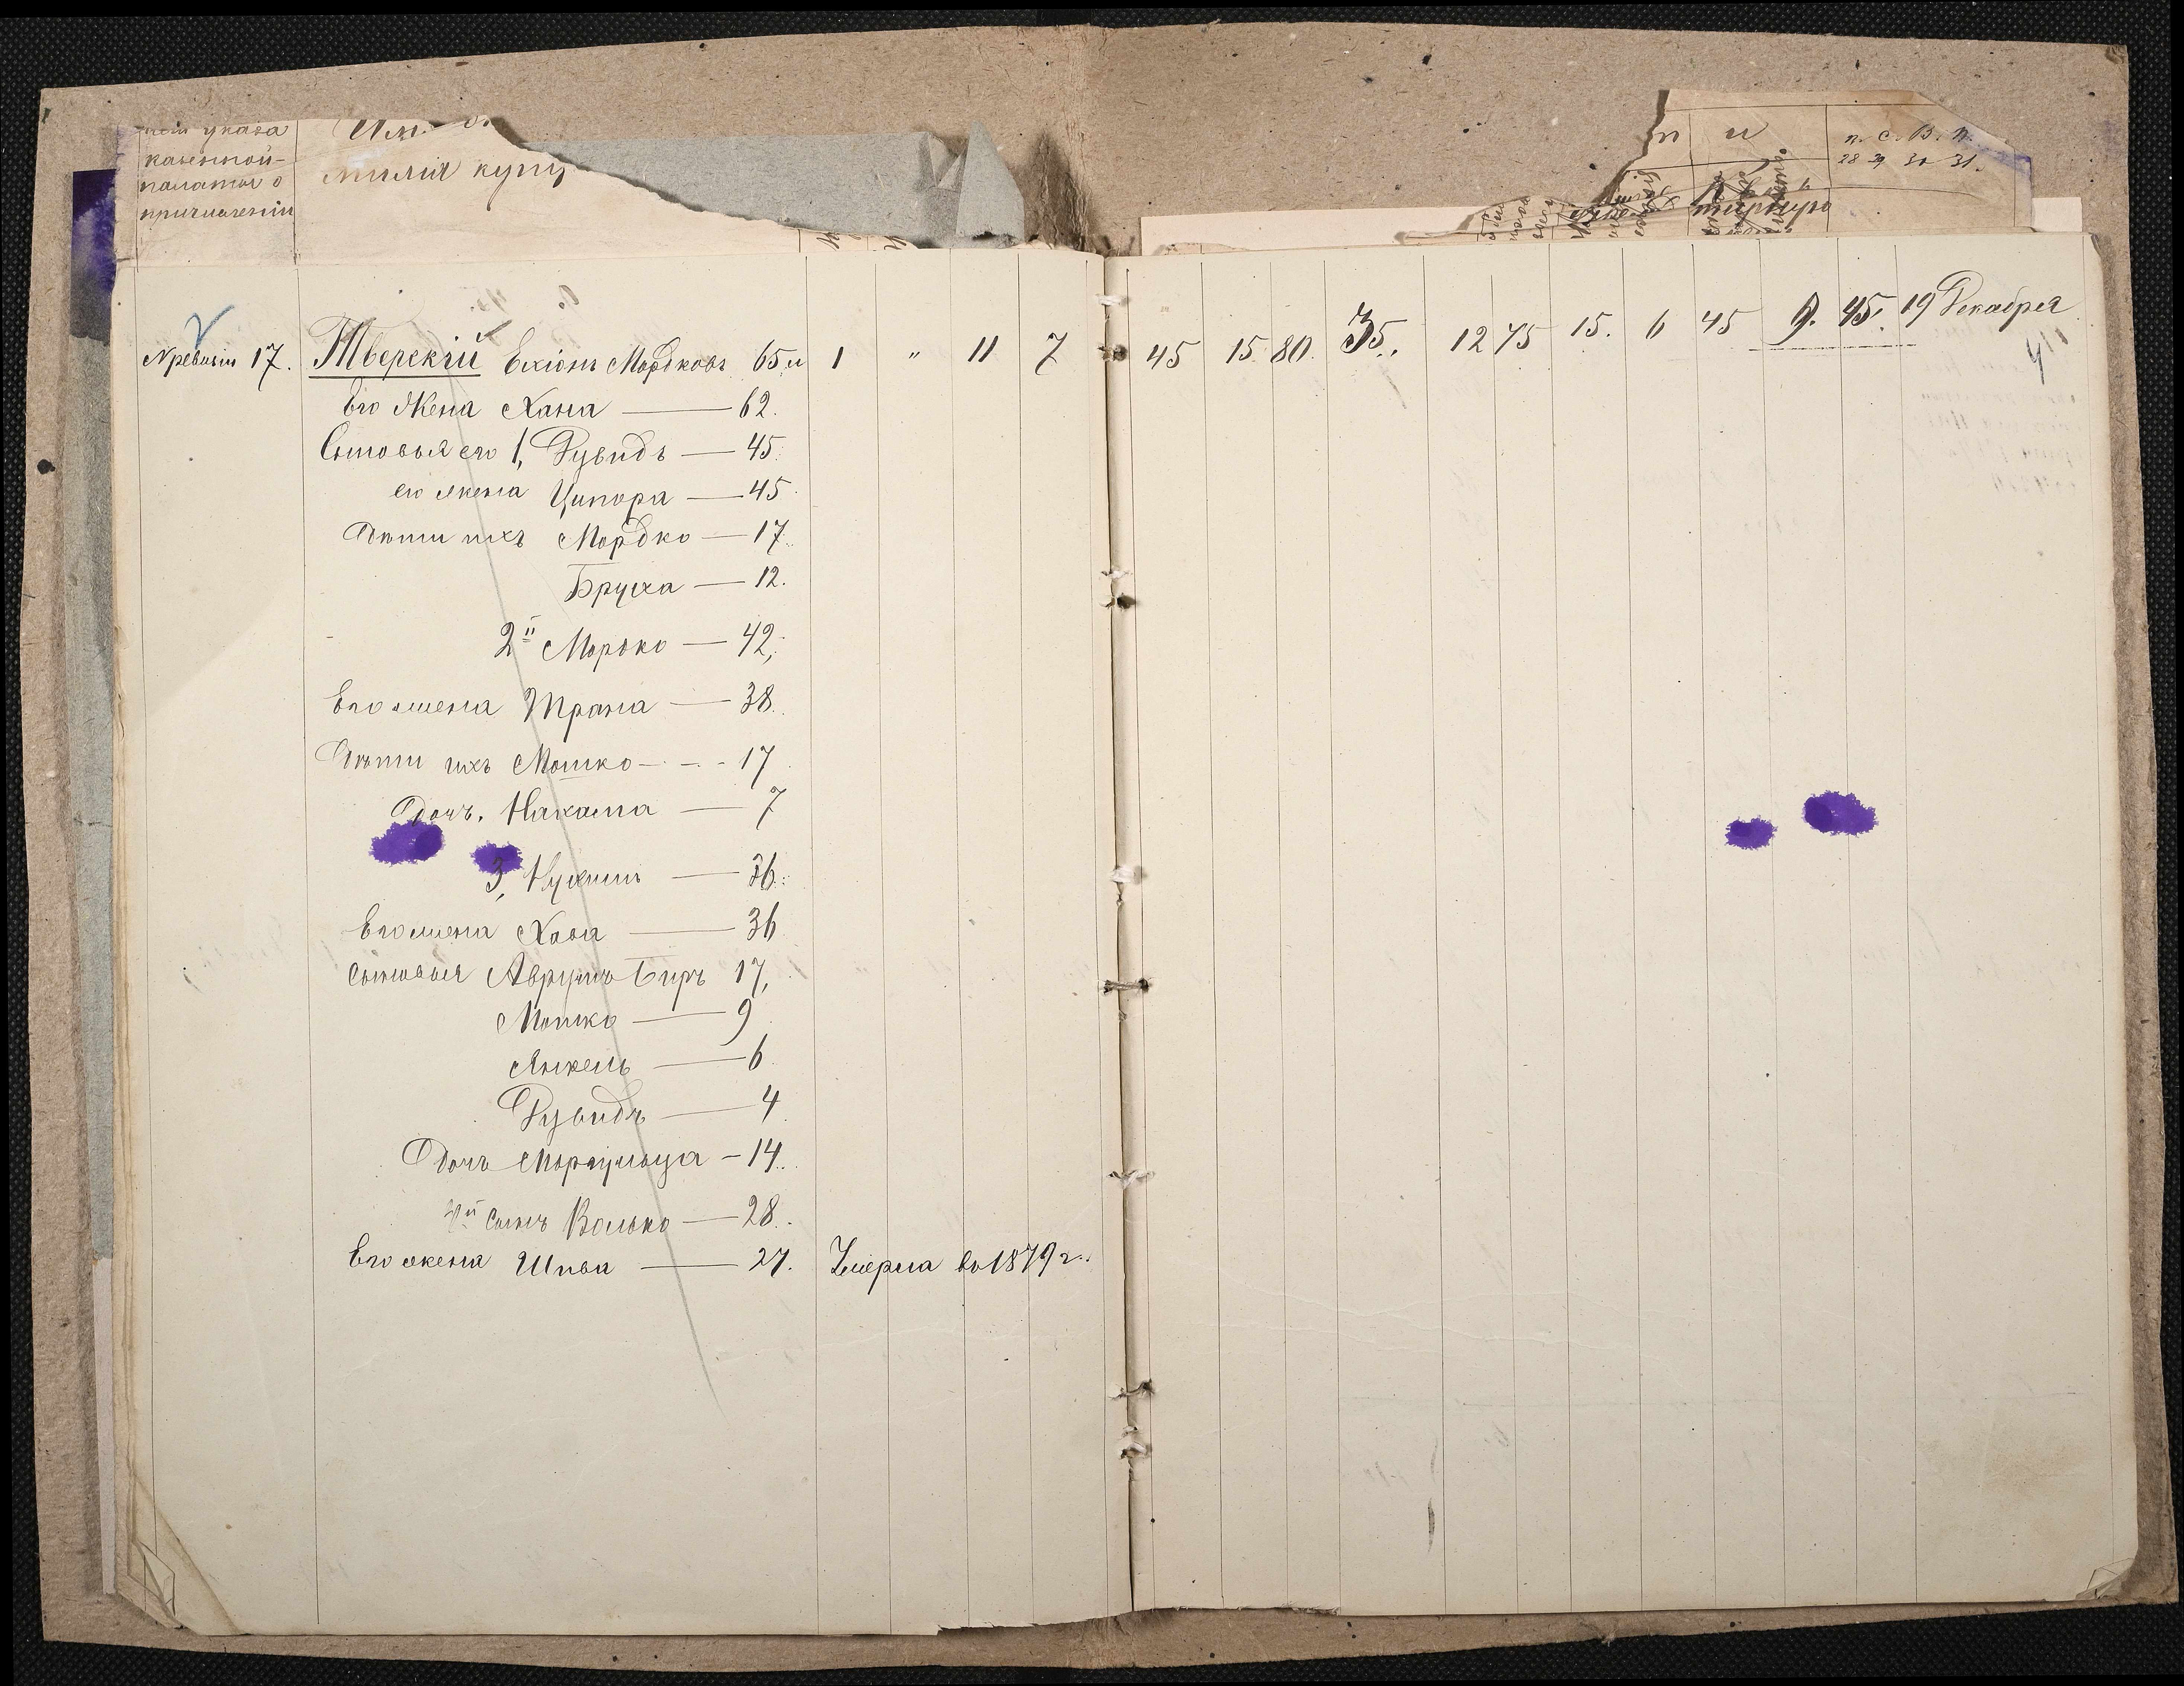 указа
казенной-
палаты о
причислении
милія купц
п и п. с. в. п.
28 29 30 31.
№ ревизіи 17. Тверскій Ехіонъ Мордковъ 65 1 " 11 7 45 15 80 35. 12 75 15. 6 45 9. 45. 19 Декабря
Его Жена Хана — 62.
Сыновья его 1, Дувидъ — 45.
его жена Ципора — 45.
Дѣти ихъ Мордко — 17.
Бруха — 12.
2й Морько — 42,
Его жена Трана — 38.
Дѣти ихъ Мошко - - - 17
Дочь. Нахама — 7
3, Нухимъ — 36.
Его жена Хова — 36
Сыновья Аврумъ Беръ 17,
Мошко — 9
Янкель — 6
Дувидъ — 4
Дочь — 14.
4й Сынъ Волько — 28.
Его жена Шева — 27. Умерла въ 1879 г.